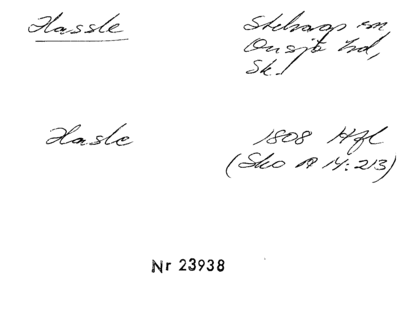 Hassle
Stehag sn,
Onsjö hd,
Sk.
Hasle
1808 Hfl
(Sko A 14:213)
Nr 23938